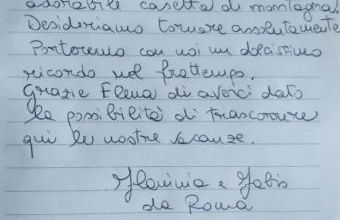 adorabile casetta di montagna.
Desideriamo tornare assolutamente
Porteremo con noi un dolcissimo
ricordo nel frattempo.
Grazie Elena di averci dato
la possibilità di trascorrere
qui le nostre vacanze.
Flaminia e Fabio
da Roma